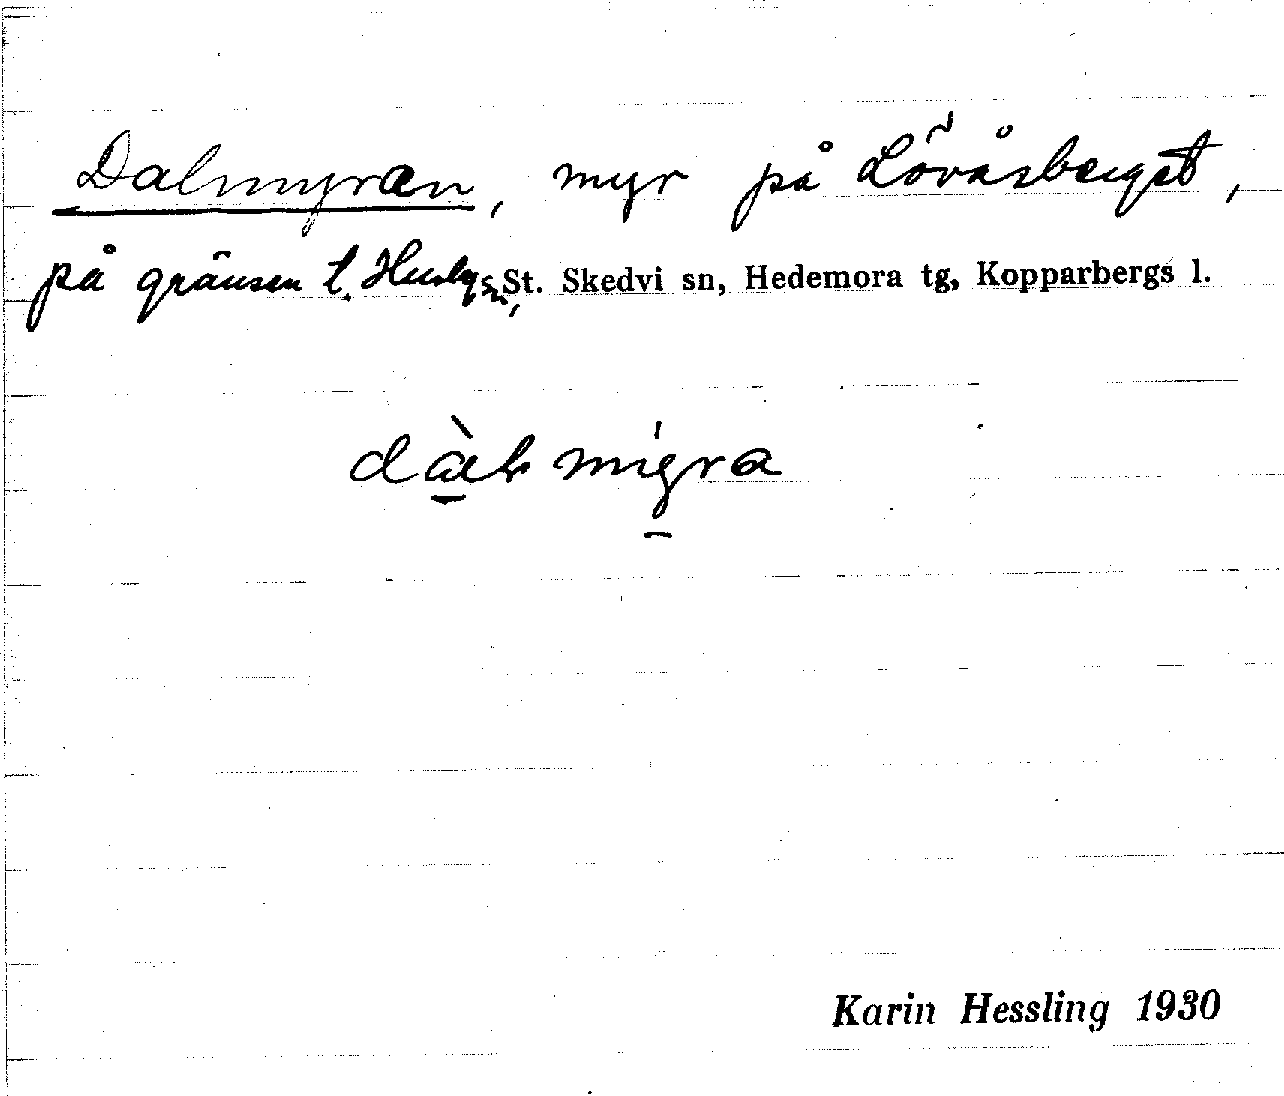 Dalmyran, myr på Lövåsberget,
på gränsen t. Husby sn, St. Skedvi sn, Hedemora tg, Kopparbergs l.
Karin Hessling 1930